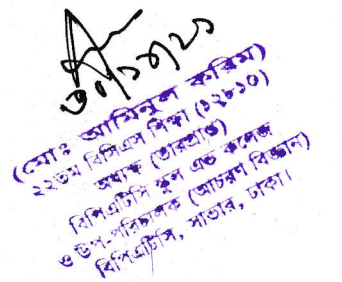 ৩০/১২/২১
(মোঃ আমিনুল করিম)
২২তম বিসিএস শিক্ষা (১২৮১০)
অধ্যক্ষ (ভারপ্রাপ্ত)
বিপিএটিসি স্কুল এন্ড কলেজ
ও উপ-পরিচালক (আচরণ বিজ্ঞান)
বিপিএটিসি, সাভার, ঢাকা।